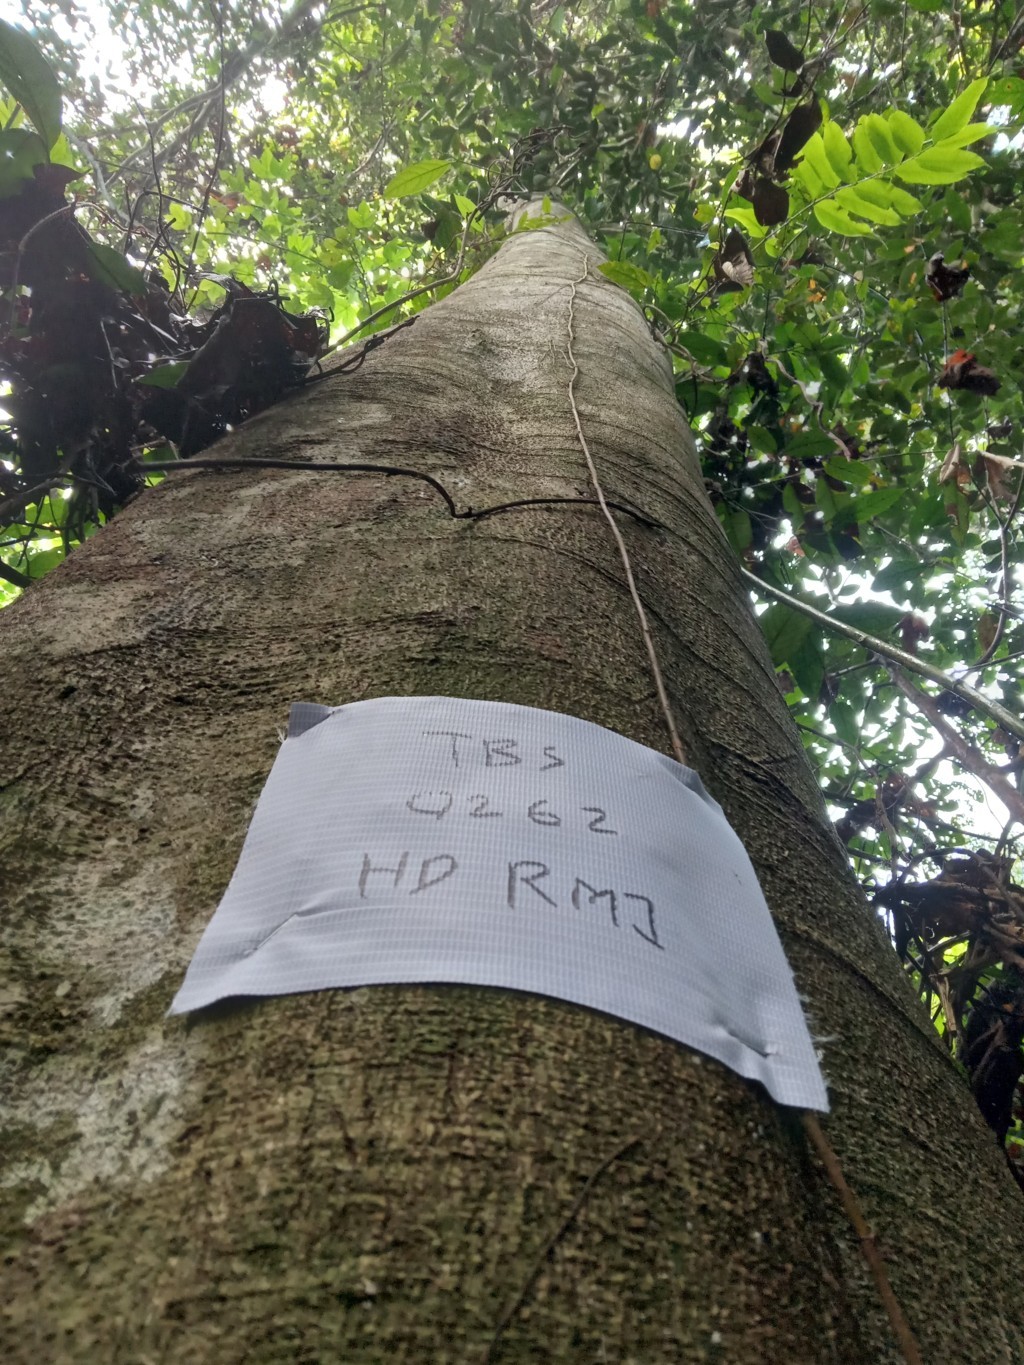 TBS
4262
HD RMJ